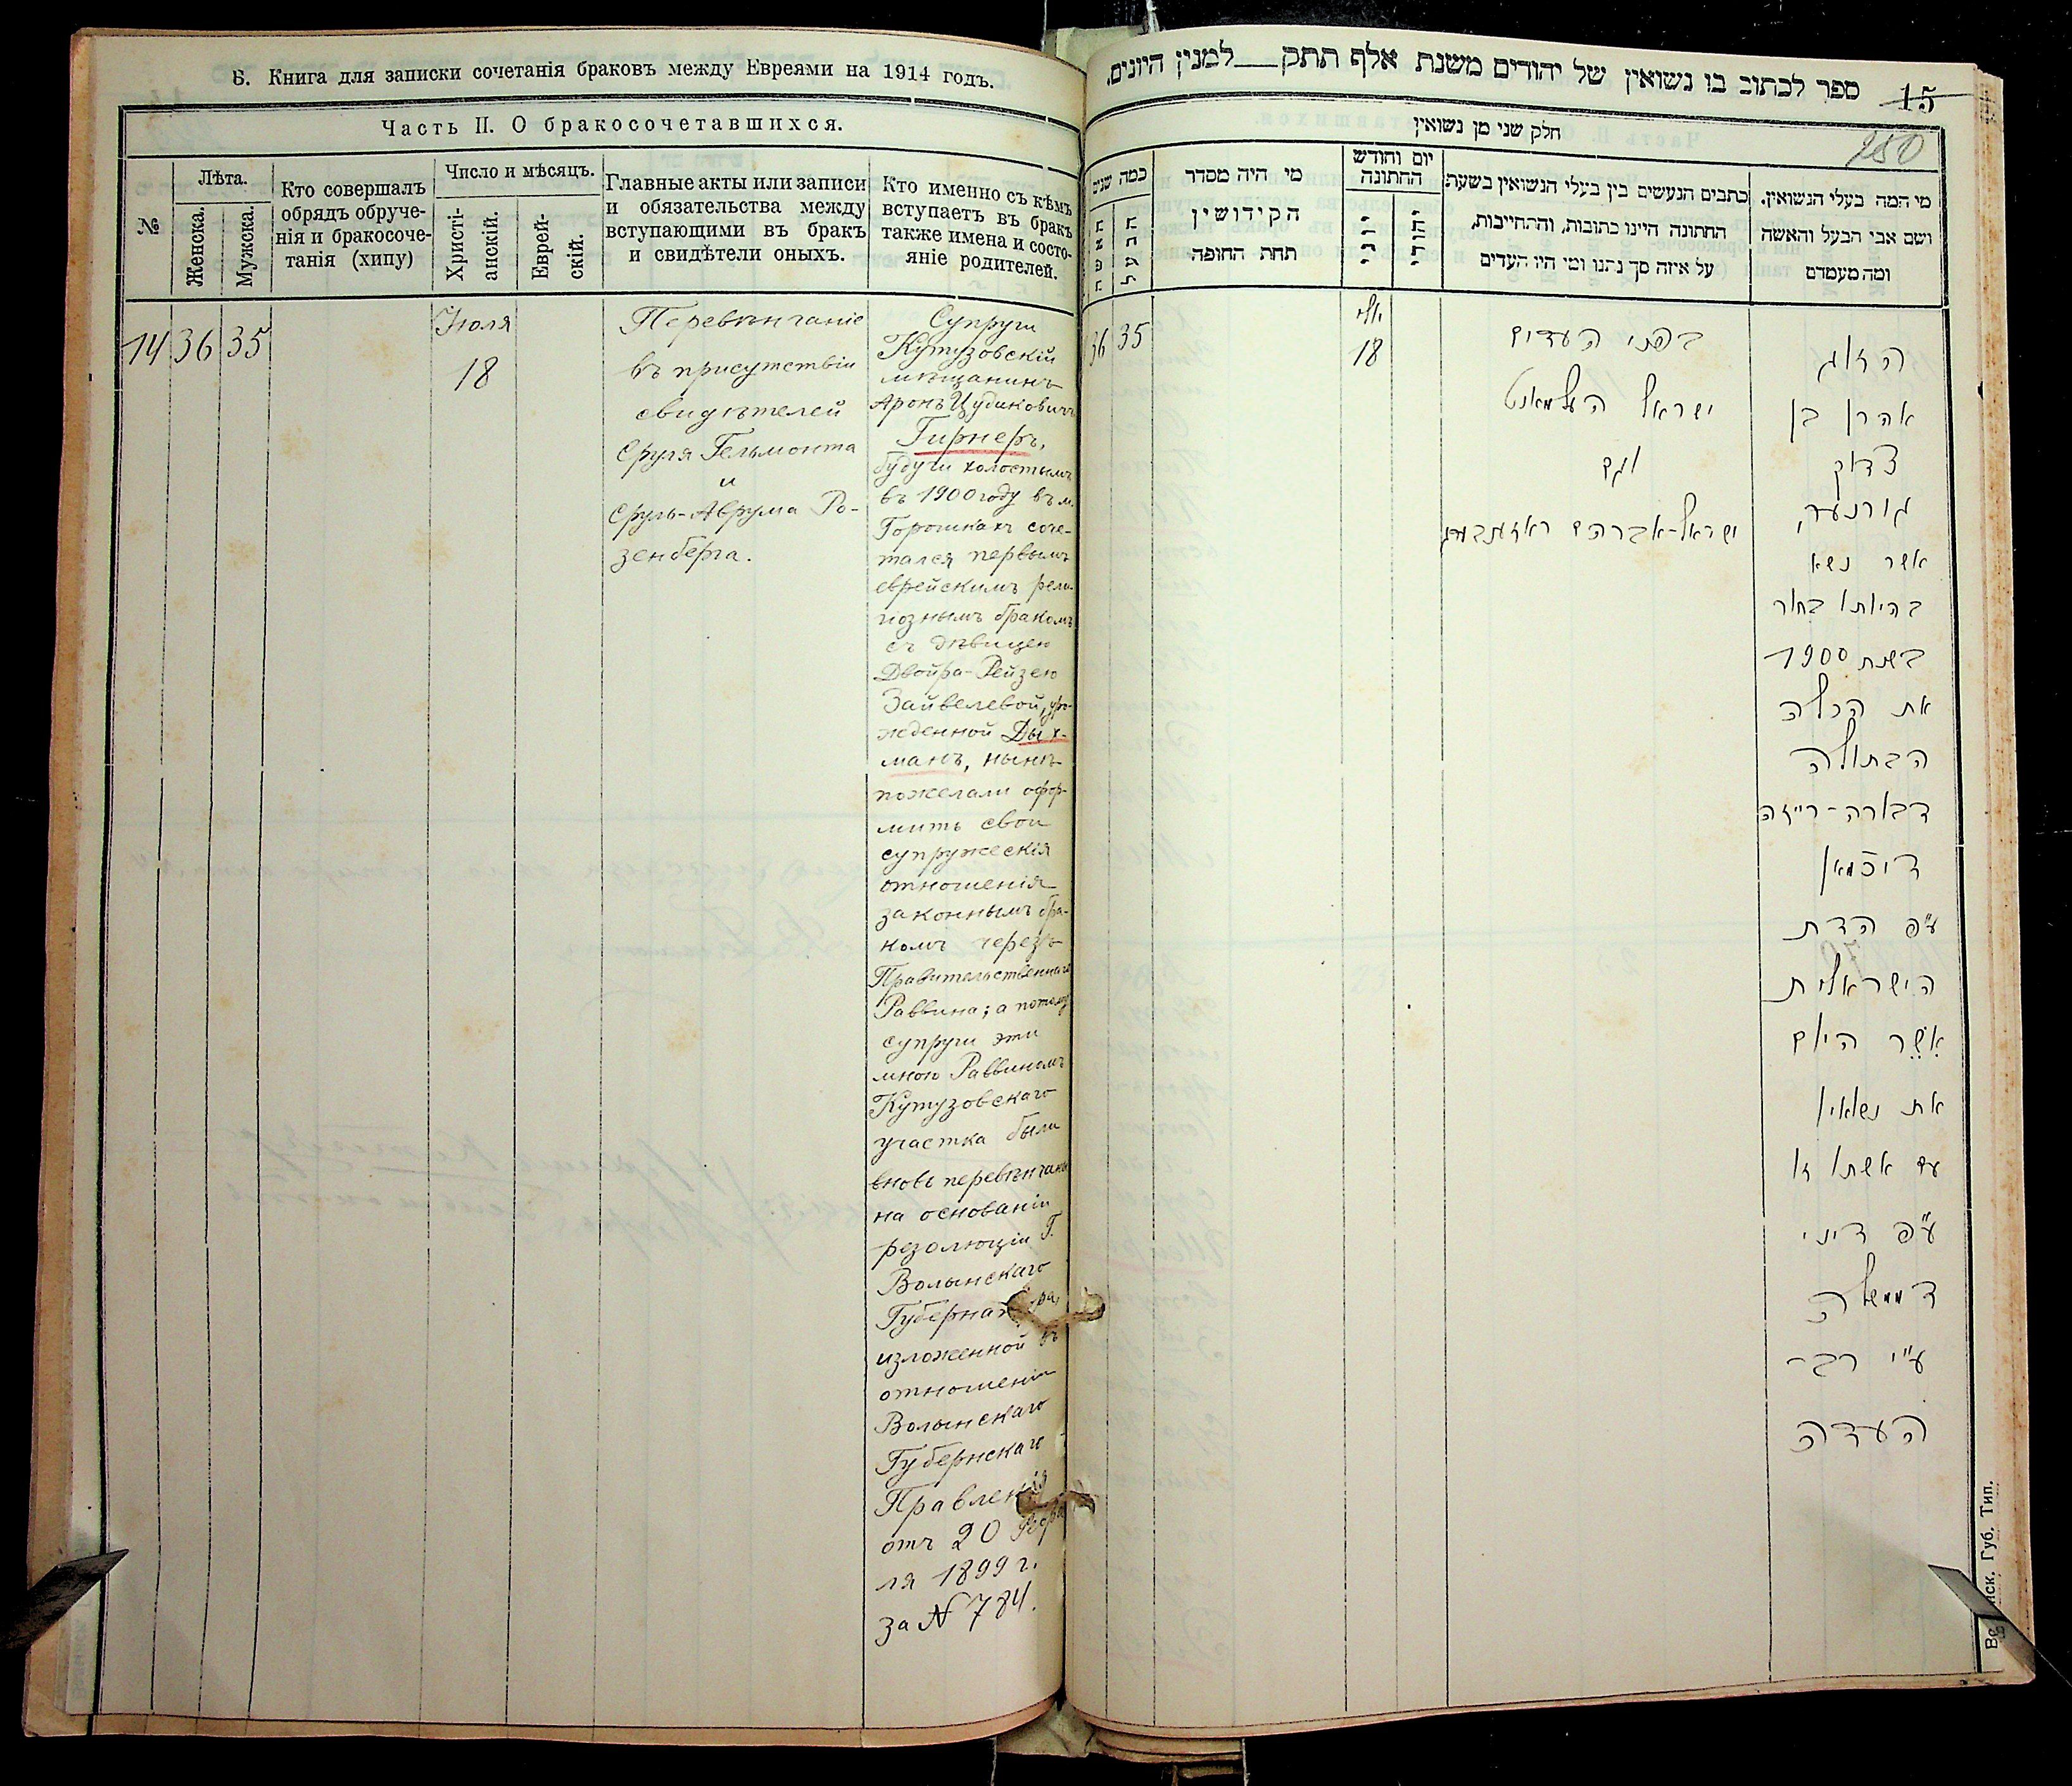 Б. Книга для записки сочетанія браковъ между Евреями на 1914 годъ.
Часть II. О бракосочетавшихся.
№
Лѣта.
Женска.
Мужска.
Кто совершалъ
обрядъ обруче-
нія и бракосоче-
танія (хипу)
Число и мѣсяцъ.
Христі-
анскій.
Еврей-
скій.
Главные акты или записи
и обязательства между
вступающими въ бракъ
и свидѣтели оныхъ.
Кто именно съ кѣмъ
вступаетъ въ бракъ
также имена и состо-
яніе родителей.
14
36
35
Іюля
18
Перевѣнчаніе
въ присутствіи
свидѣтелей
Сруля Гельмонта
и
Сруль-Аврума Ро-
зенберга.
Супруги
Кутузовскій
мѣщанинъ
Аронъ
Гирнеръ,
будучи холостымъ
въ 1900 году въ м.
Горошкахъ соче-
тался первымъ
еврейскимъ рели-
гіознымъ бракомъ
съ дѣвицею
Двойра-Рейзею
Зайвелевой, уро-
жденной Дых-
манъ, нынѣ
пожелали офор-
мить свои
супружескія
отношенія
законнымъ бра-
комъ черезъ
Правительственнаго
Раввина; а потому
супруги эти
мною Раввиномъ
Кутузовскаго
участка были
вновь перевѣнчаны
на основаніи
резолюціи Г.
Волынскаго
Губернатора,
изложенной въ
отношеніи
Волынскаго
Губернскаго
Правленія
отъ 20 Февра
ля 1899 г.
за № 784.
ספר לכתוב בו נשואין של יהודים משנת אלף תתק למנין היונים.
15
250
חלק שני מן נשואין
כמה שנים
האשה
הבעל
מי היה מסדר
הקידושין
תחת החופה
יום וחודש
החתונה
כתבים הנעשים בין בעלי הנשואין בשעת
החתונה היינו כתובות, והתחייבות,
על איזה סך נתנו ומי היו העדים
מי המה בעלי הנשואין.
ושם אבי הבעל והאשה
ומה מעמדם
36
35
יולי
18
בפני העדים
ישראל העלמאנט
וגם
ישראל-אברהם ראזענבערג
הזוג
אהרן בן
צדוק
גורנער,
אשר נשא
בהיותו בחור
בשנת 1900
את הכלה
הבתולה
דבורה-רייזה
דיכמאן
ע"פ הדת
הישראלית
אשר היום
את נשואין
עם אשתו זו
ע"פ דיני
הממשלה
ע"י רב-
העדה
нск. Губ. Тип.